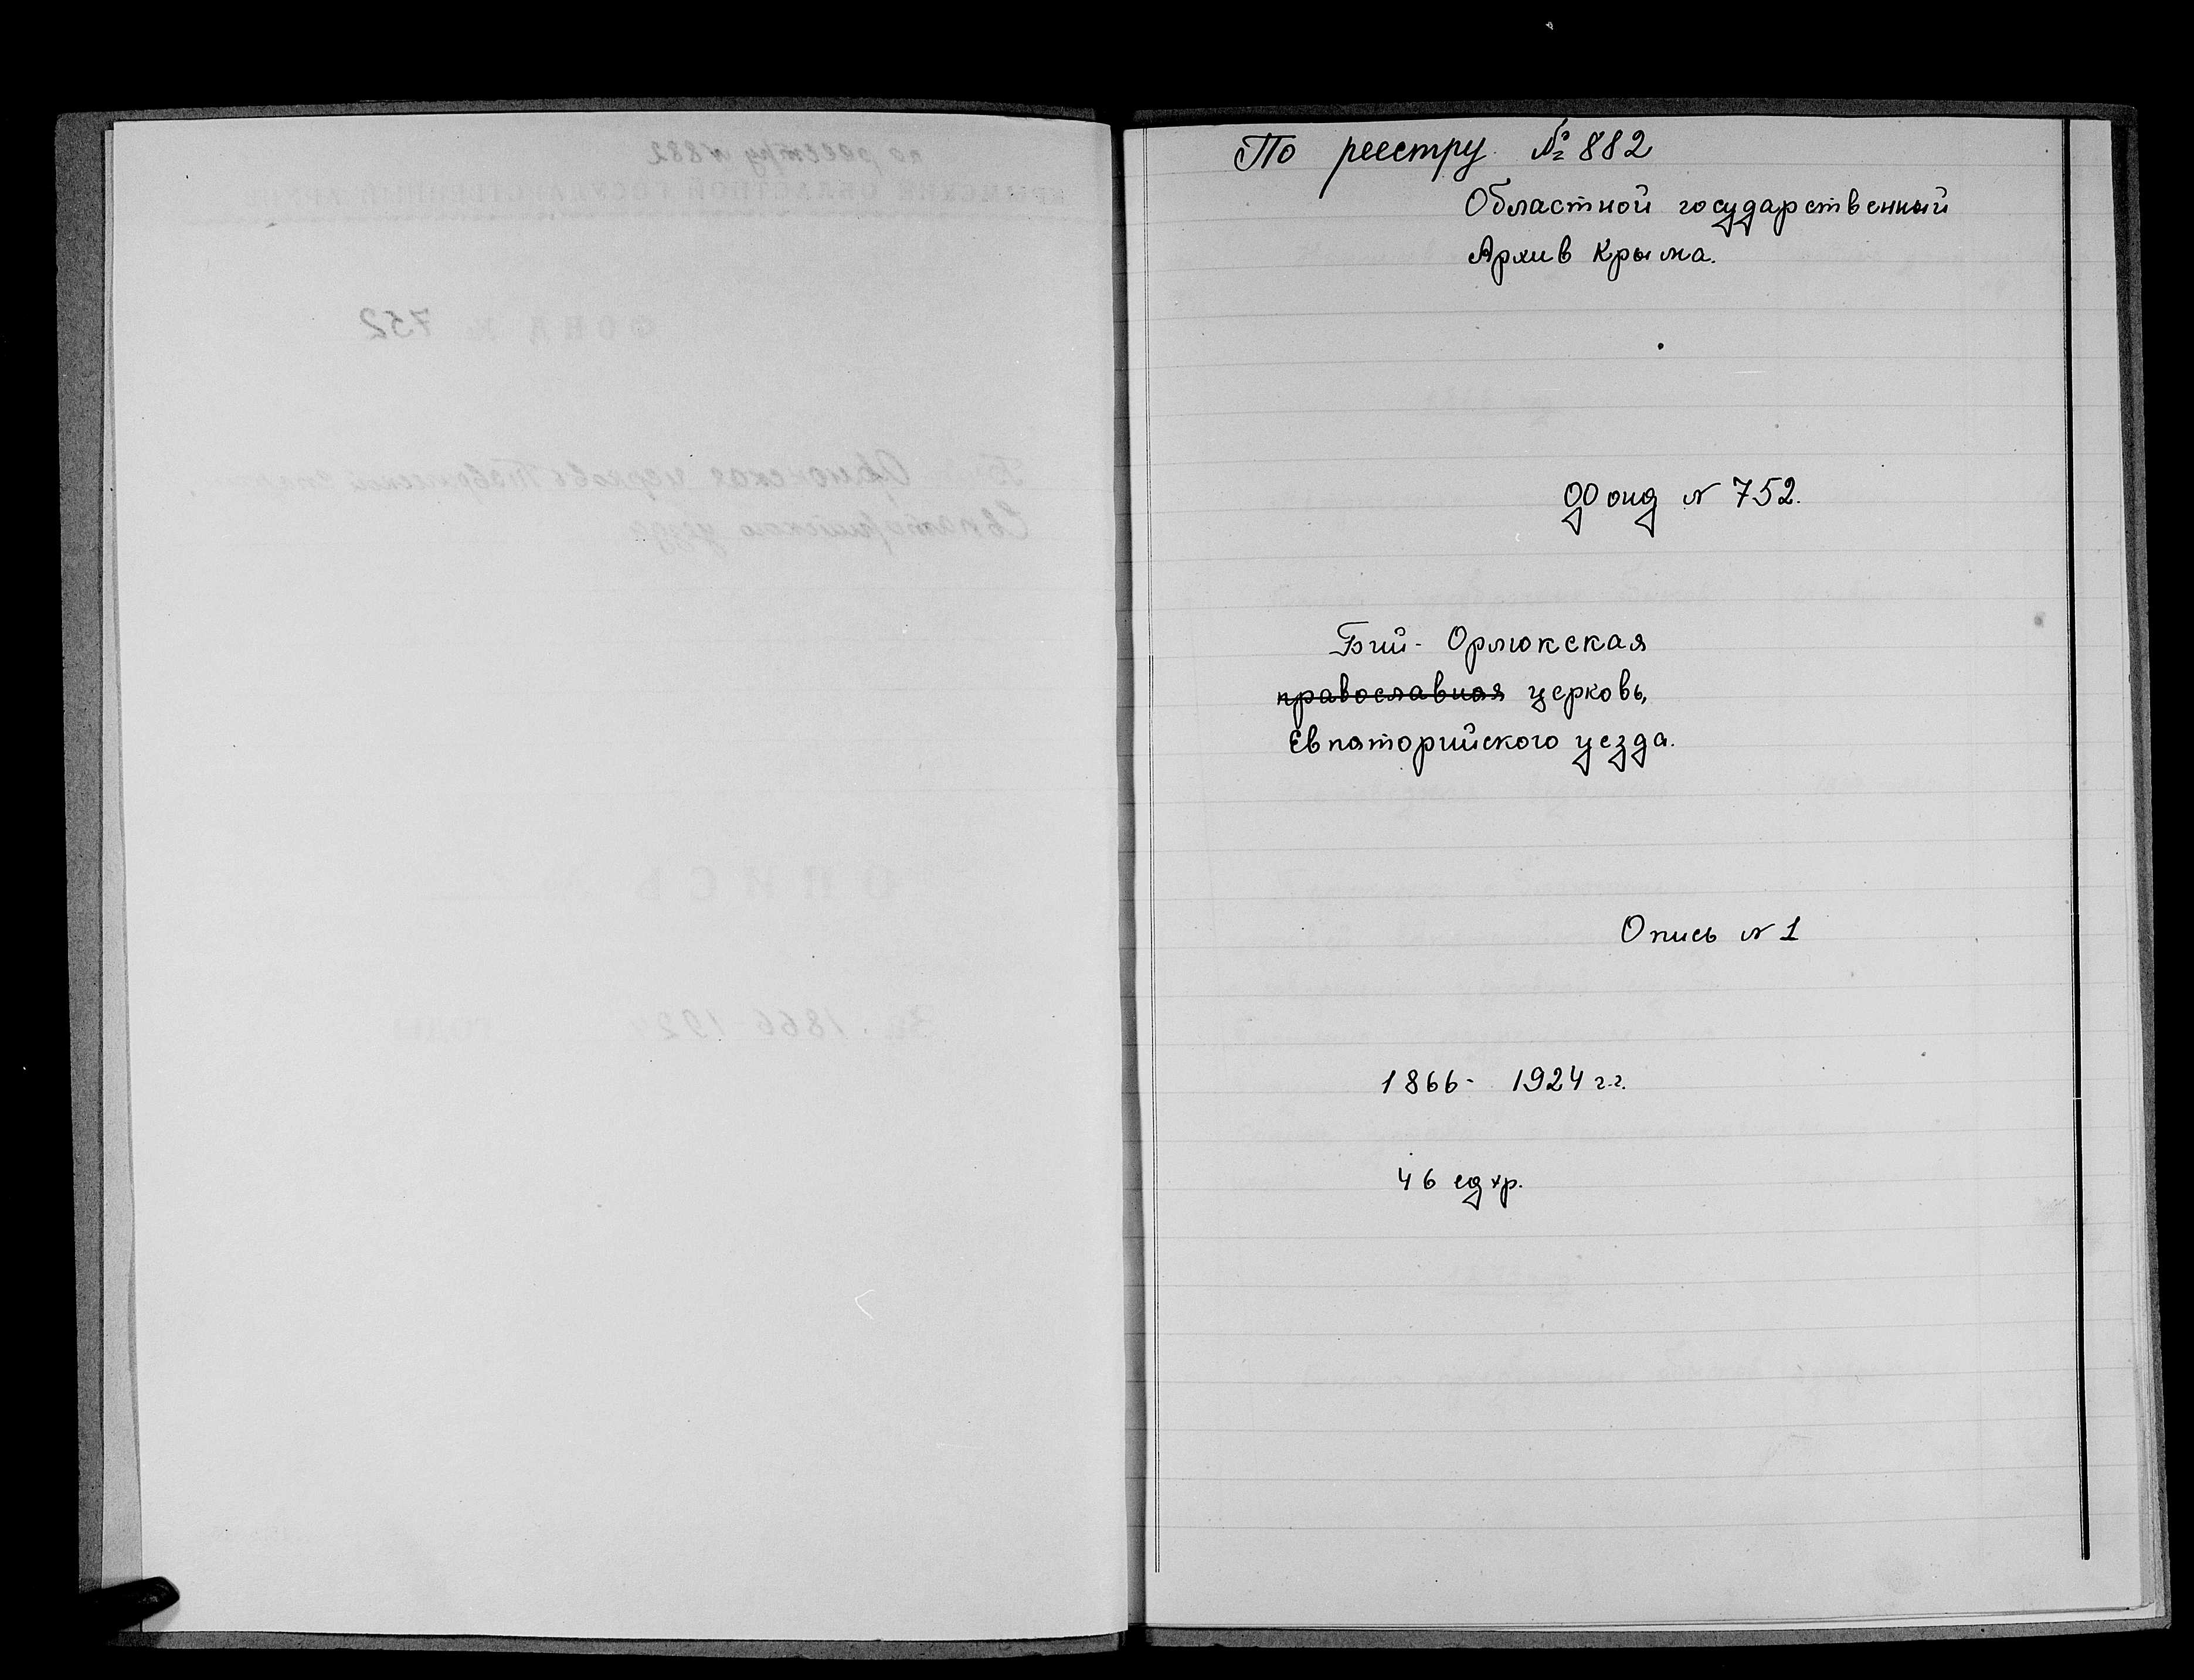 По реестру № 882
Областной государственный
Архив Крыма.
Фонд N 752.
Бий-Орлюкская
православная церковь,
Евпаторийского уезда.
Опись N 1
1866- 1924 г.г.
46 ед хр.